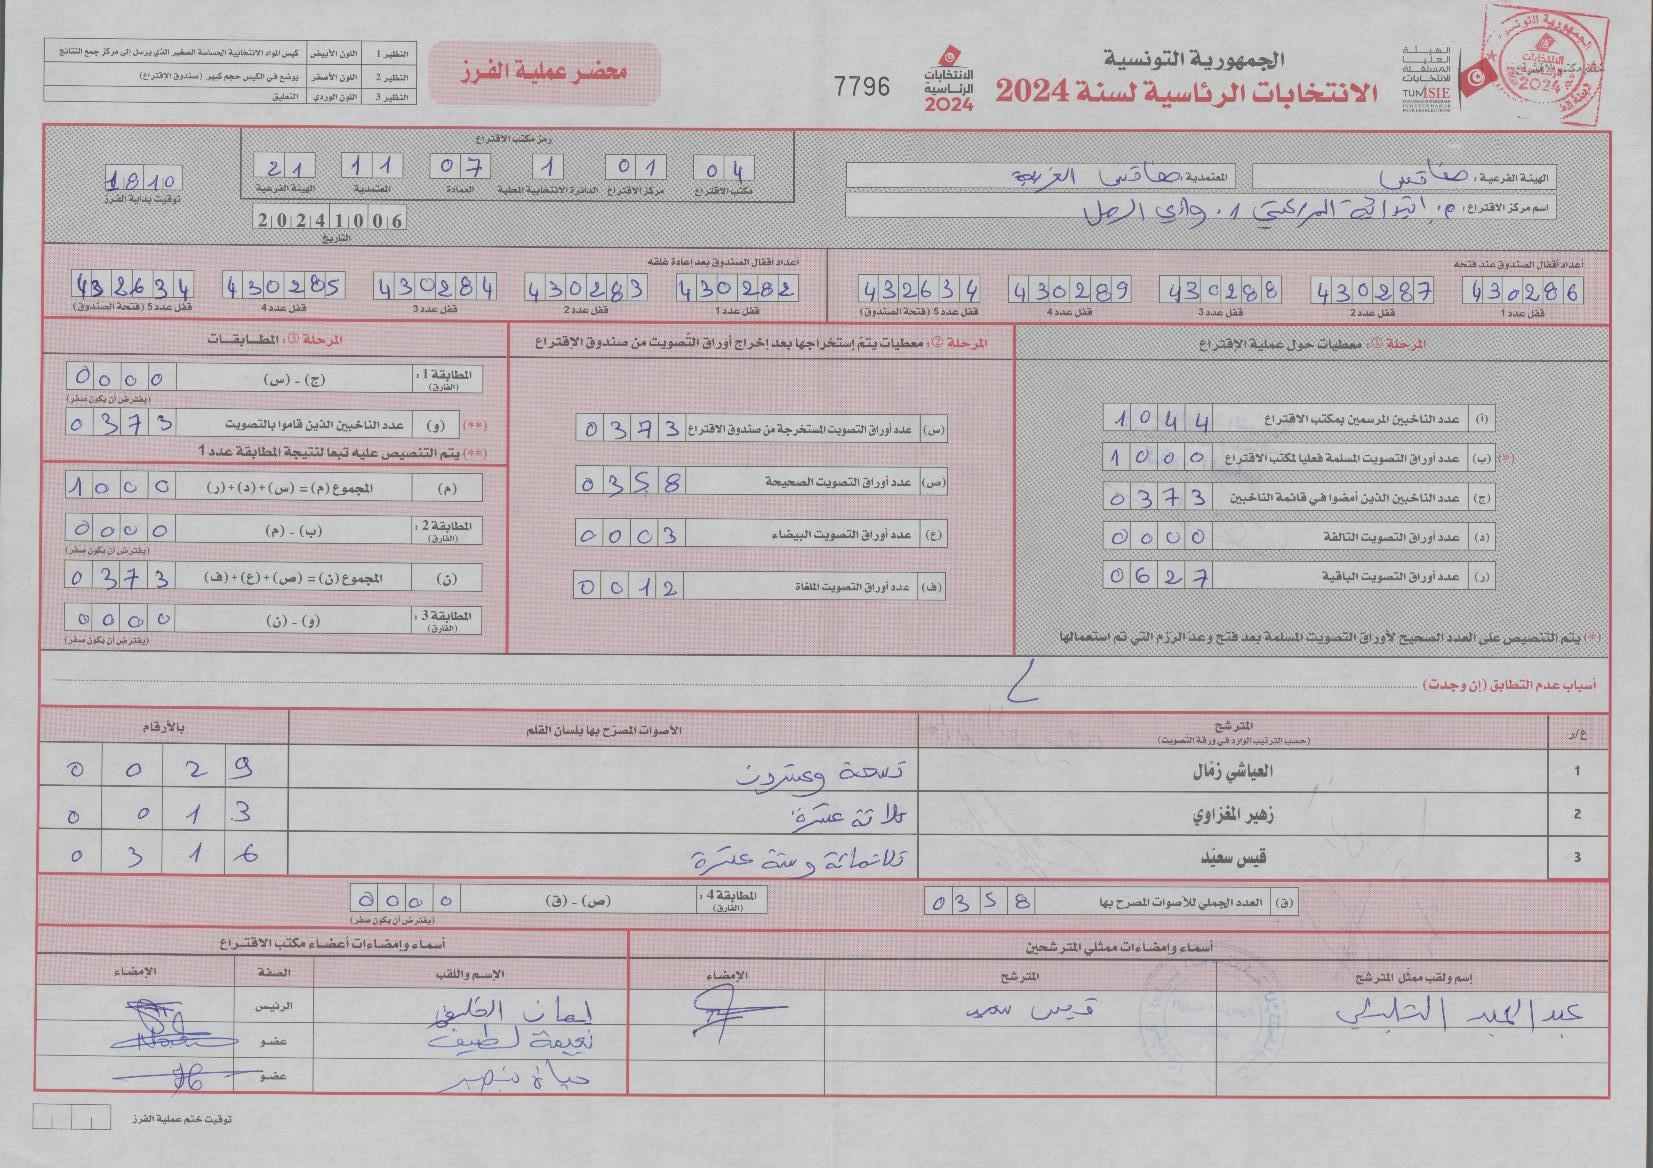 الجمهورية التونسية
الانتخابات الرئاسية لسنة 2024
الهيئة العليا المستقلة للانتخابات
TUNISIE
الانتخابات الرئاسية 2024
7796
محضر عملية الفرز
النظير 1 اللون الأبيض كيس المواد الانتخابية الحساسة الصغير الذي يرسل إلى مركز جمع النتائج
النظير 2 اللون الأصفر يوضع في الكيس حجم كبير (صندوق الاقتراع)
النظير 3 اللون الوردي التعليق
الهيئة الفرعية: صفاقس
المعتمدية: صفاقس الغربية
اسم مركز الاقتراع: م. ابتدائية المراكشي 1.
رمز مكتب الاقتراع
04 01 1 07 11 21
مكتب الاقتراع مركز الاقتراع الدائرة الانتخابية المحلية العمادة المعتمدية الهيئة الفرعية
20241006
التاريخ
1810
توقيت بداية الفرز
أعداد أقفال الصندوق عند فتحه
430286 430287 430288 430289 432634
قفل عدد 1 قفل عدد 2 قفل عدد 3 قفل عدد 4 قفل عدد 5 (فتحة الصندوق)
أعداد أقفال الصندوق بعد إعادة غلقه
430282 430283 430284 430285 432634
قفل عدد 1 قفل عدد 2 قفل عدد 3 قفل عدد 4 قفل عدد 5 (فتحة الصندوق)
المرحلة ①: معطيات حول عملية الإقتراع
(أ) عدد الناخبين المرسمين بمكتب الاقتراع 1044
(*) (ب) عدد أوراق التصويت المسلمة فعليا لمكتب الاقتراع 1000
(ج) عدد الناخبين الذين أمضوا في قائمة الناخبين 0373
(د) عدد أوراق التصويت التالفة 0000
(ر) عدد أوراق التصويت الباقية 0627
(*) يتم التنصيص على العدد الصحيح لأوراق التصويت المسلمة بعد فتح وعد الرزم التي تم استعمالها
المرحلة ②: معطيات يتم إستخراجها بعد إخراج أوراق التصويت من صندوق الاقتراع
(س) عدد أوراق التصويت المستخرجة من صندوق الاقتراع 0373
(ص) عدد أوراق التصويت الصحيحة 0358
(ع) عدد أوراق التصويت البيضاء 0003
(ف) عدد أوراق التصويت الملغاة 0012
المرحلة ③: المطابقات
المطابقة 1: (الفارق) (ج) - (س) 0000
(يفترض أن يكون صفر)
(**) (و) عدد الناخبين الذين قاموا بالتصويت 0373
(**) يتم التنصيص عليه تبعا لنتيجة المطابقة عدد 1
(م) المجموع (م) = (س)+(د)+(ر) 1000
المطابقة 2: (الفارق) (ب) - (م) 0000
(يفترض أن يكون صفر)
(ن) المجموع (ن) = (ص)+(ع)+(ف) 0373
المطابقة 3: (الفارق) (و) - (ن) 0000
(يفترض أن يكون صفر)
أسباب عدم التطابق (إن وجدت)
ع/ر المترشح (حسب الترتيب الوارد في ورقة التصويت) الأصوات المصرّح بها بلسان القلم بالأرقام
1 العياشي زمّال تسعة وعشرون 0029
2 زهير المغزاوي ثلاثة عشرة 0013
3 قيس سعيّد ثلاثمائة وستة عشرة 0316
(ق) العدد الجملي للأصوات المصرح بها 0358
المطابقة 4: (الفارق) (ص) - (ق) 0000
(يفترض أن يكون صفر)
أسماء وإمضاءات ممثلي المترشحين
إسم ولقب ممثل المترشح المترشح الإمضاء
قيس سعيد
أسماء وإمضاءات أعضاء مكتب الاقتراع
الإسم واللقب الصفة الإمضاء
إيمان الرئيس
نعيمة لطيف عضو
حياة عضو
توقيت ختم عملية الفرز